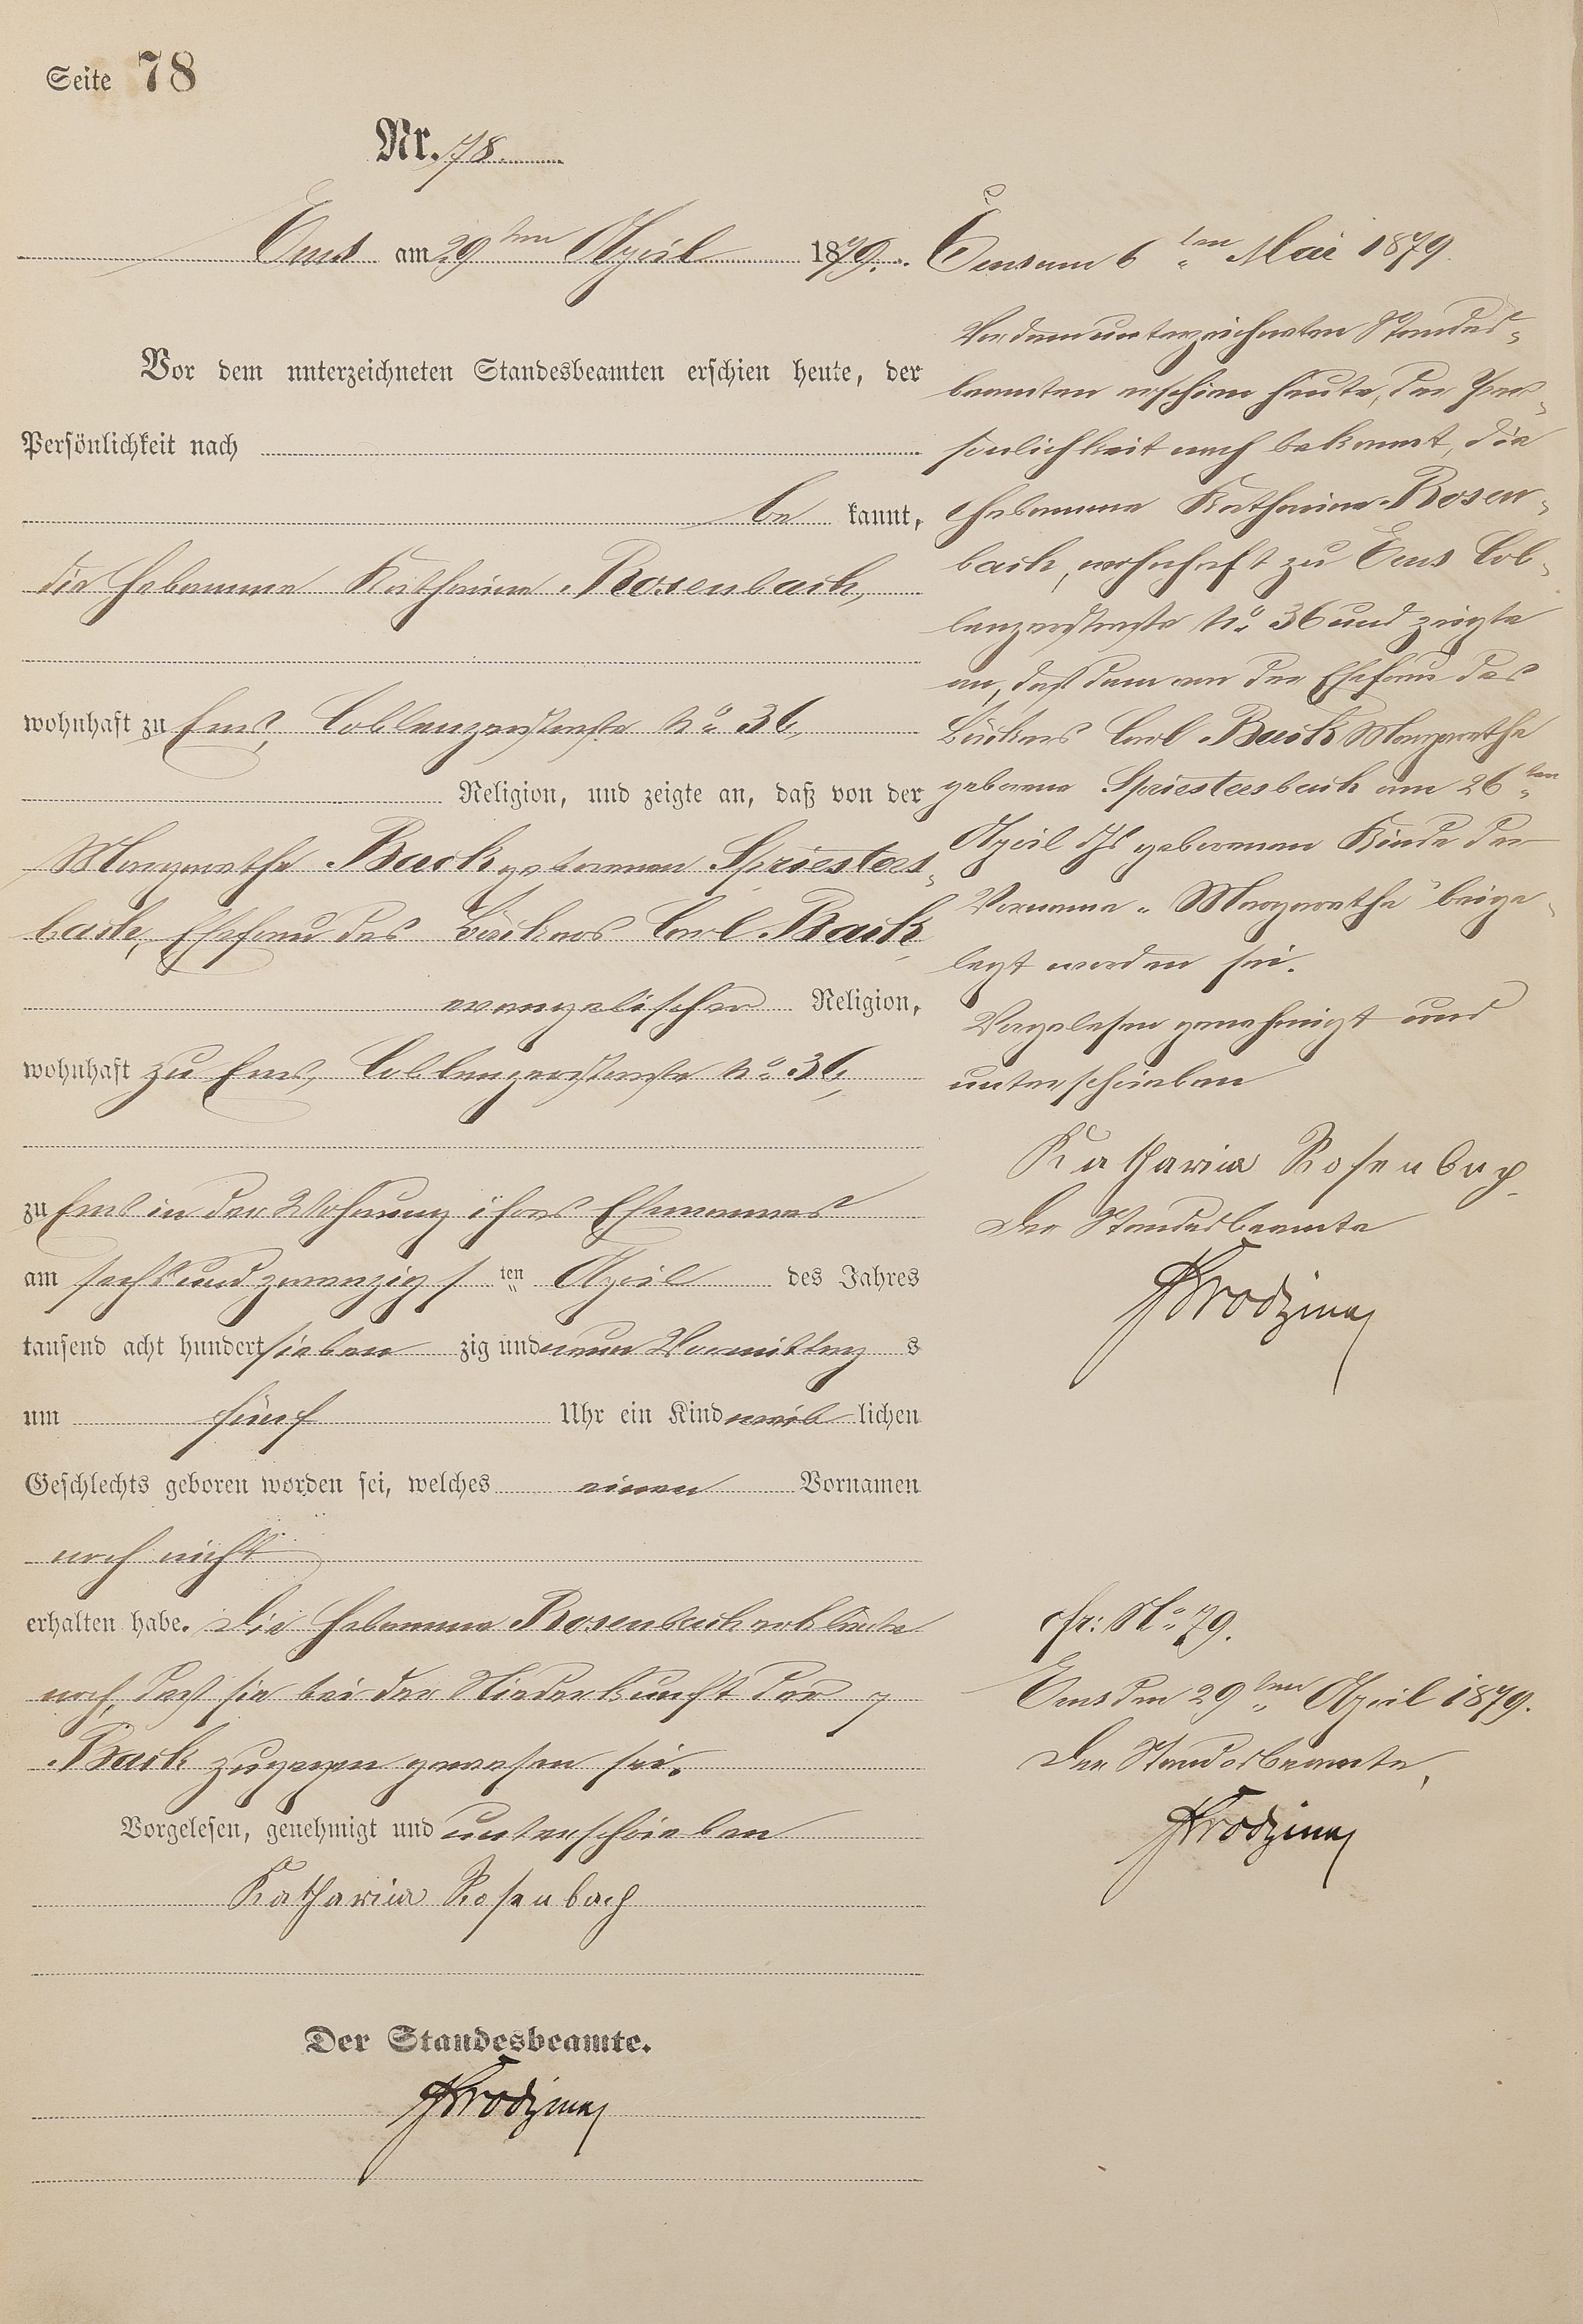 Seite 78
Nr. 78.
Ems am 29ten April 1879.
Vor dem unterzeichneten Standesbeamten erschien heute, der
Persönlichkeit nach
be kannt,
die Hebamme Katharina Rosenbach,
wohnhaft zu Ems, Coblenzerstraße No 36,
Religion, und zeigte an, daß von der
Margarethe Back geborenen Spriesters-
bach, Ehefrau des Bäckers Carl Back
evangelischer Religion,
wohnhaft zu Ems, Coblenzerstraße No 36,
zu Ems in der Wohnung ihres Ehemannes
am sechsundzwanzigs ten April des Jahres
tausend acht hundert sieben zig und neun Vormittag s
um fünf Uhr ein Kind weib lichen
Geschlechts geboren worden sei, welches einen Vornamen
noch nicht
erhalten habe. Die Hebamme Rosenbach erklärte
noch, daß sie bei der Niederkunft der
Back zugegen gewesen sei.
Vorgelesen, genehmigt und unterschrieben
Katharina Rosenbach
Der Standesbeamte.
Ems am 6ten Mai 1879.
Vor dem unterzeichneten Standes-
beamten erschien heute, der Per-
sönlichkeit nach bekannt, die
Hebamme Katharina Rosen-
bach, wohnhaft zu Ems Cob-
lenzerstraße No 36 und zeigte
an, daß dem von der Ehefrau des
Bäckers Carl Back Margarethe
geborene Spriestersbach am 26ten
April d Js geborenen Kinde der
Vorname „Margarethe" beige-
legt worden sei.
Vorgelesen genehmigt und
unterschrieben
Katharina Rosenbach.
Der Standesbeamte
cfr: No 79.
Ems den 29ten April 1879.
Der Standesbeamte,